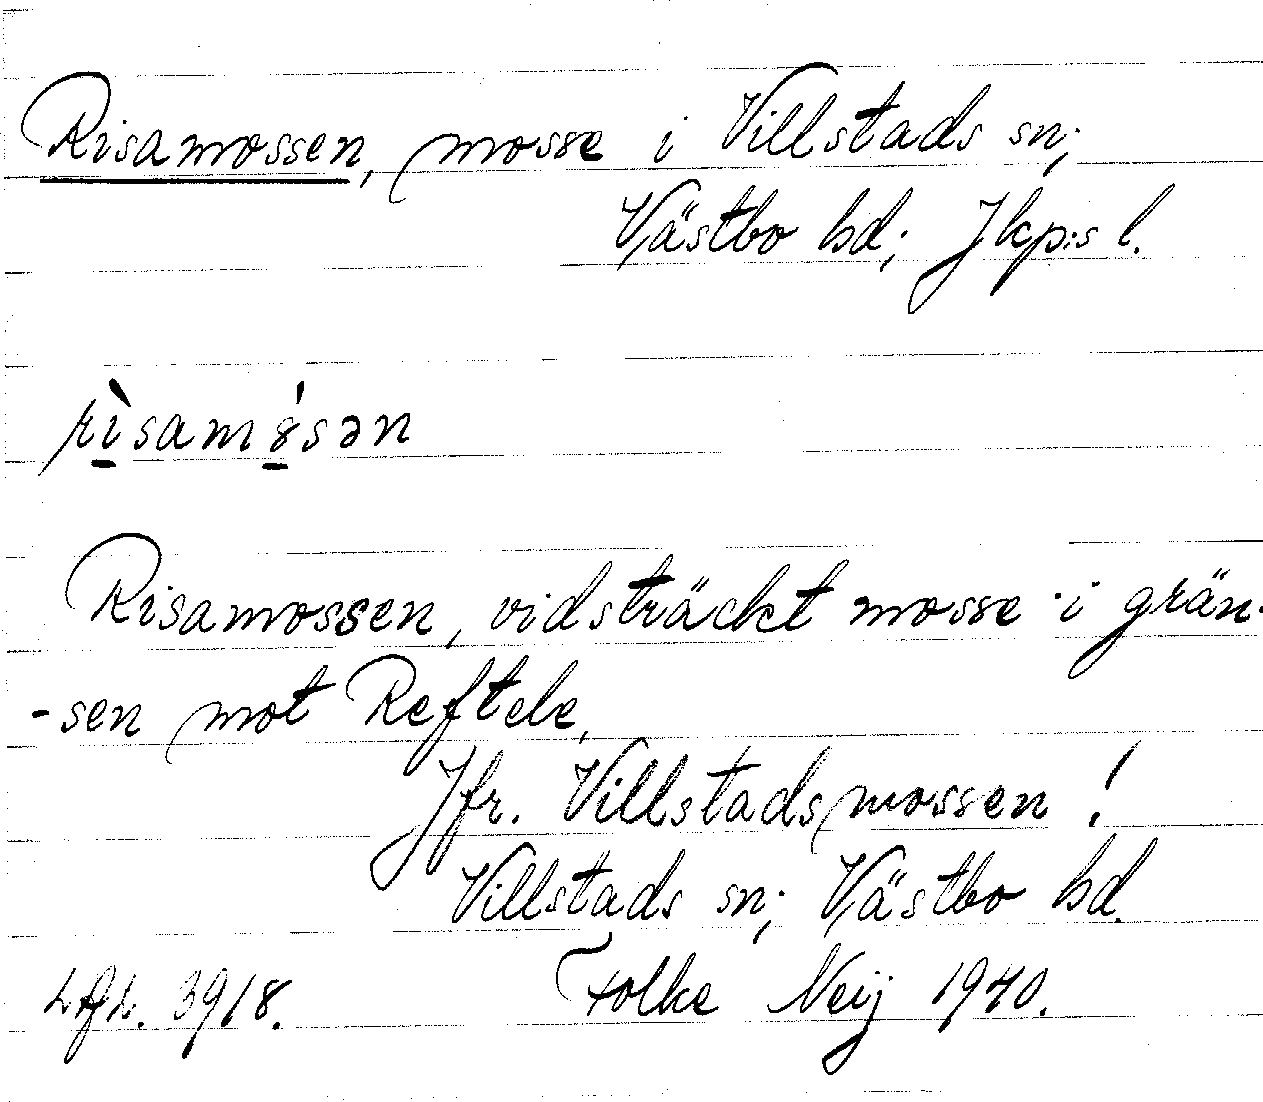 Risamossen, mosse i Villstads sn;
Västbo hd; Jkp:s l.
rìsamósən
Risamossen, vidsträckt mosse i grän-
-sen mot Reftele.
Jfr. Villstadsmossen!
Villstads sn; Västbo hd.
3918. Folke Neij 1940.